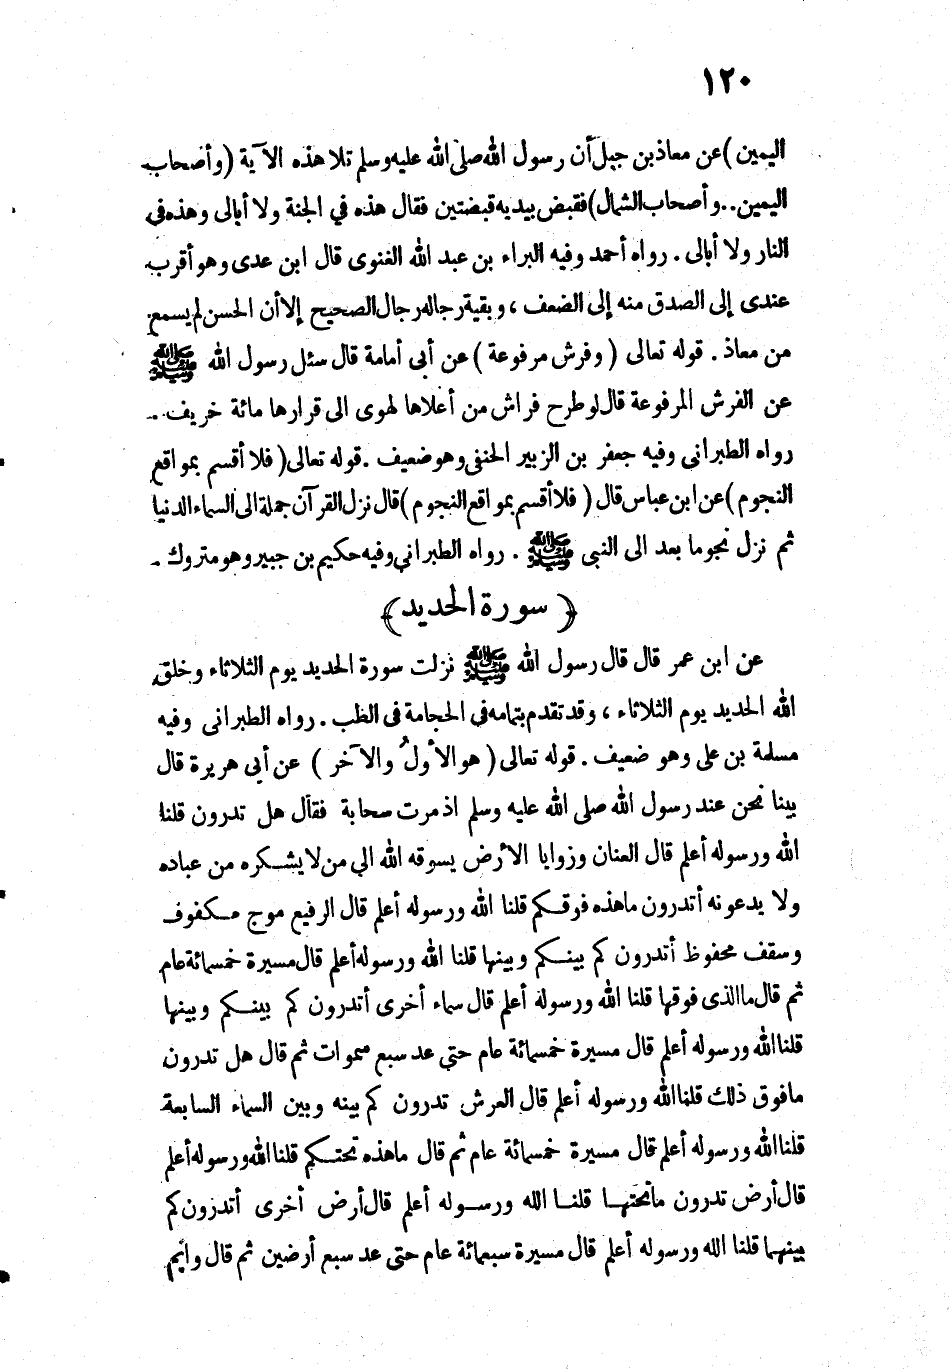 ١٢٠
اليمين ) عن معاذ بن جبل أن رسول الله صلى الله عليه وسلم تلا هذه الآية ( وأصحاب
اليمين .. وأصحاب الشمال ) فقبض بيديه قبضتين فقال هذه في الجنة ولا أبالى وهذه في
النار ولا أبالى . رواه أحمد وفيه البراء بن عبد الله الغنوى قال ابن عدى وهو أقرب
عندى إلى الصدق منه إلى الضعف ، وبقية رجاله رجال الصحيح إلا أن الحسن لم يسمع
من معاذ . قوله تعالى ( وفرش مرفوعة ) عن أبى أمامة قال سئل رسول الله ﷺ
عن الفرش المرفوعة قال لو طرح فراش من أعلاها لهوى الى قرارها مائة خريف .
رواه الطبرانى وفيه جعفر بن الزبير الحنفى وهو ضعيف . قوله تعالى ( فلا أقسم بمواقع
النجوم ) عن ابن عباس قال ( فلا أقسم بمواقع النجوم ) قال نزل القرآن جملة الى السماء الدنيا
ثم نزل نجوما بعد الى النبى ﷺ . رواه الطبرانى وفيه حكيم بن جبير وهو متروك .
﴿ سورة الحديد ﴾
عن ابن عمر قال قال رسول الله ﷺ نزلت سورة الحديد يوم الثلاثاء وخلق
الله الحديد يوم الثلاثاء ، وقد تقدم بتمامه في الحجامة في الطب . رواه الطبرانى وفيه
مسلمة بن على وهو ضعيف . قوله تعالى ( هو الأولُ والآخر ) عن أبى هريرة قال
بينا نحن عند رسول الله صلى الله عليه وسلم اذ مرت سحابة فقال هل تدرون قلنا
الله ورسوله أعلم قال العنان وزوايا الأرض يسوقه الله الي من لا يشكره من عباده
ولا يدعونه أتدرون ما هذه فوقكم قلنا الله ورسوله أعلم قال الرفيع موج مكفوف
وسقف محفوظ أتدرون كم بينكم وبينها قلنا الله ورسوله أعلم قال مسيرة خمسمائة عام
ثم قال ما الذى فوقها قلنا الله ورسوله أعلم قال سماء أخرى أتدرون كم بينكم وبينها
قلنا الله ورسوله أعلم قال مسيرة خمسمائة عام حتى عد سبع سموات ثم قال هل تدرون
ما فوق ذلك قلنا الله ورسوله أعلم قال العرش تدرون كم بينه وبين السماء السابعة
قلنا الله ورسوله أعلم قال مسيرة خمسمائة عام ثم قال ما هذه تحتكم قلنا الله ورسوله أعلم
قال أرض تدرون ما تحتها قلنا الله ورسوله أعلم قال أرض أخرى أتدرون كم
بينهما قلنا الله ورسوله أعلم قال مسيرة سبعمائة عام حتى عد سبع أرضين ثم قال وايم